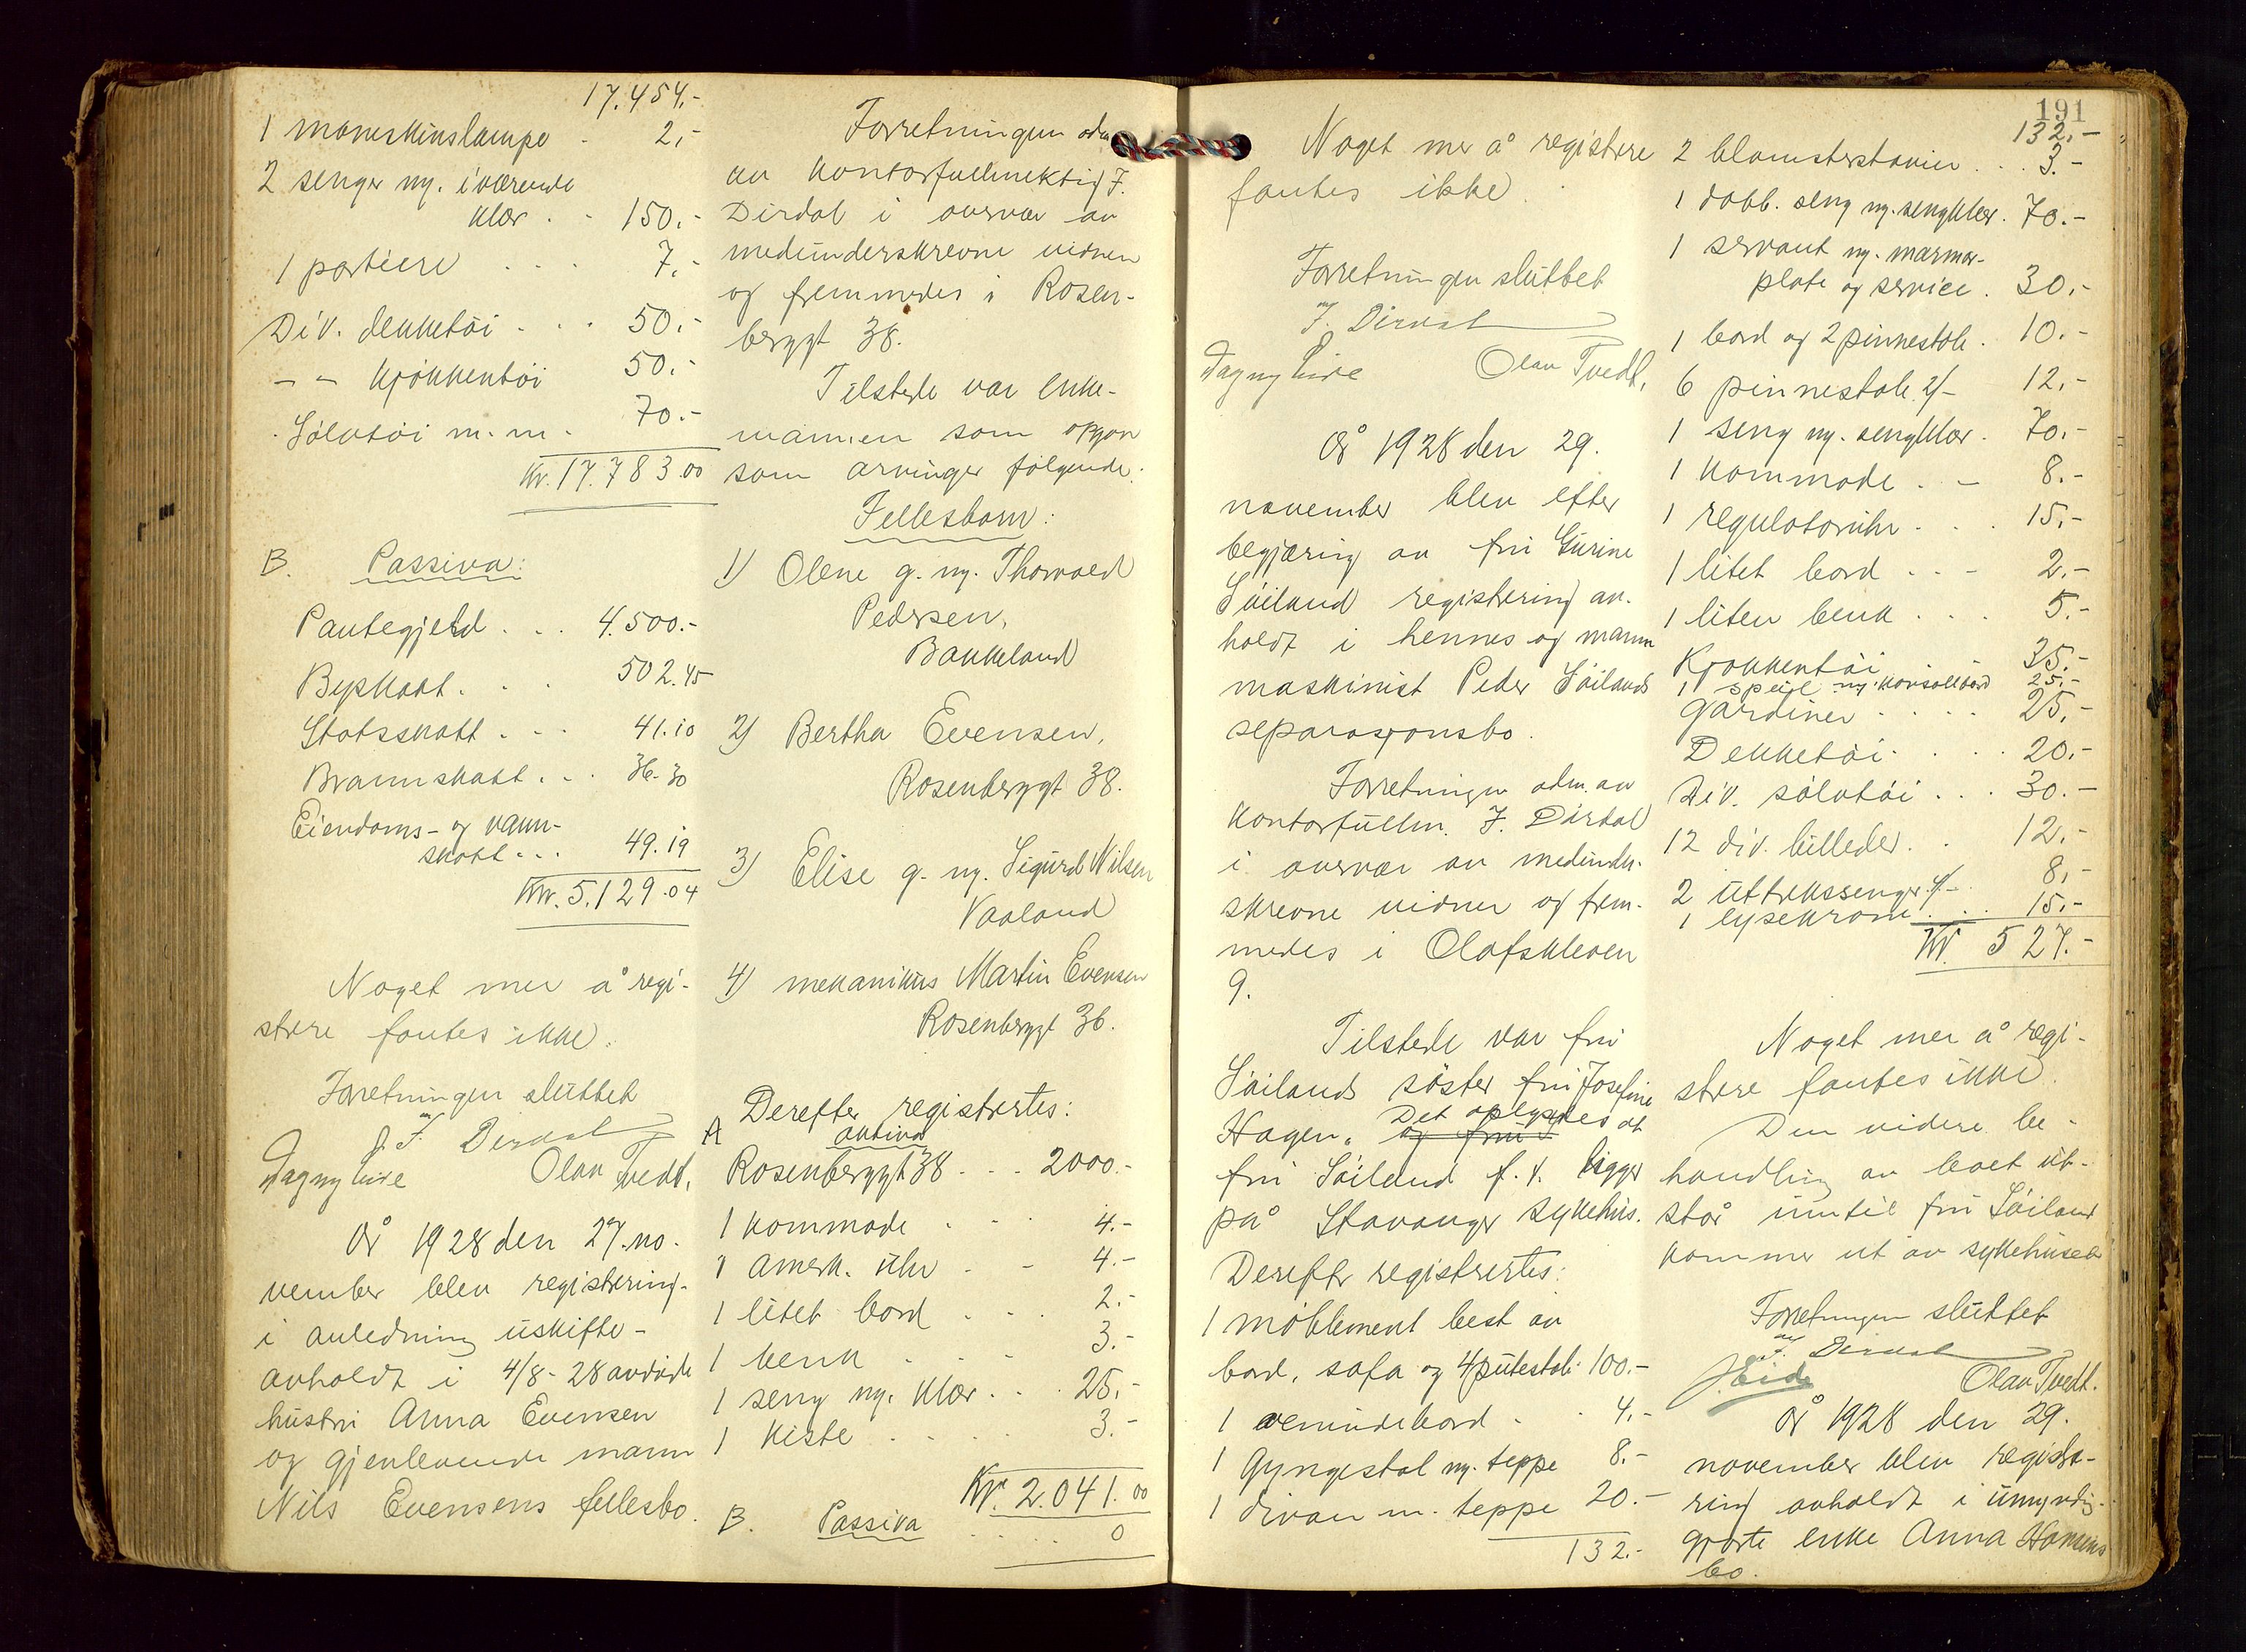 17.454.-
1 maneskinslampe - 2,-
2 senger m. iværende
klær . - 150.-
1 portiere . . . 7.-
Div. dekketøi . . . 50.-
- " - kjøkkentøi 50.-
Sølvtøi m.m. 70.-
Kr. 17.783.00
B. Passiva:
Pantegjeld . . . 4.500.-
Byskatt. . . 502.45
Statsskatt . . . 41.10
Brannskatt . . . 36.30
Eiendoms- og vann-
skatt . . . 49.19
Kr. 5.129.04
Noget mer å regi-
strere fantes ikke.
Forretningen sluttet
J. Dirdal
Dagny Eide Olav Tvedt.
År 1928 den 27. no-
vember blev registrering
i anledning uskifte-
avholdt i 4/8-28 avdøde
hustru Anna Evensen
og gjenlevende mann
Nils Evensens fellesbo.
Forretningen adm.
av kontorfullmektig J.
Dirdal i overvær av
medunderskrevne vidner
og fremmedes i Rosen-
berggt 38.
Tilstede var enke-
mannen som opgav
som arvinger følgende:
Fellesbarn:
1) Olene g. m. Thorvald
Pedersen,
Bakkeland
2) Bertha Evensen,
Rosenberggt 38.
3) Elise g. m. Sigurd Nilsen
Vaaland
4) mekanikus Martin Evensen
Rosenberggt 36.
Derefter registrertes:
A aktiva
Rosenberggt 38 . . . 2000.-
1 kommode . . . 4.-
1 amerk. uhr . - 4.-
1 litet bord . . . 2.-
1 benk . . . 3.-
1 seng m. klær . . . 25.-
1 kiste . . . . 3.-
Kr. 2.041.00
B. Passiva . . . 0
Noget mer å registrere
fantes ikke.
Forretningen sluttet
J. Dirdal
Dagny Eide Olav Tvedt,
År 1928 den 29.
november blev efter
begjæring av fru Gurine
Søiland registrering av-
holdt i hennes og mann
maskinist Peder Søilands
separasjonsbo.
Forretningen adm. av
kontorfullm. J. Dirdal
i overvær av medunder-
skrevne vidner og frem-
medes i Olafskleven
9.
Tilstede var fru
Søilands søster fru Josefine
Hagen. og fru Det oplystes at
fru Søiland f. t. ligger
på Stavanger sykehus.
Derefter registrertes:
1 møblement best av
bord, sofa og 4 putestole 100.-
1 vernindebord . . 4.-
1 Gyngestol m. teppe 8.-
1 divan m. teppe 20.-
132.-
191
132.-
2 blomsterstativer . . . 3.-
1 dobb. seng m. sengklær . 70.-
1 servant m. marmor-
plate og service . 30.-
1 bord og 2 pinnestole . 10.-
6 pinnestole 2/- 12.-
1 seng m. sengklær . 70.-
1 kommode . . - 8.-
1 regulatoruhr . . . 15.-
1 litet bord . . - 2.-
1 liten benk . . . 5.-
Kjøkkentøi 35.-
1 speil m. konsollbord 25.-
Gardiner . . . . 25.-
Dekketøi . . . . 20.-
Div. sølvtøi . . . 30.-
12 div. billeder . . 12.-
2 uttrekssenger 4/- . 8.-
1 lysekrone . . . 15.-
Kr. 527.-
Noget mer å regi-
strere fantes ikke.
Den videre be-
handling av boet ut-
står inntil fru Søiland
kommer ut av sykehuset
Forretningen sluttet
J. Dirdal
J. Eide Olav Tvedt.
År 1928 den 29.
november blev registre-
ring avholdt i umyndig-
gjorte enke Anna Hansens
bo.